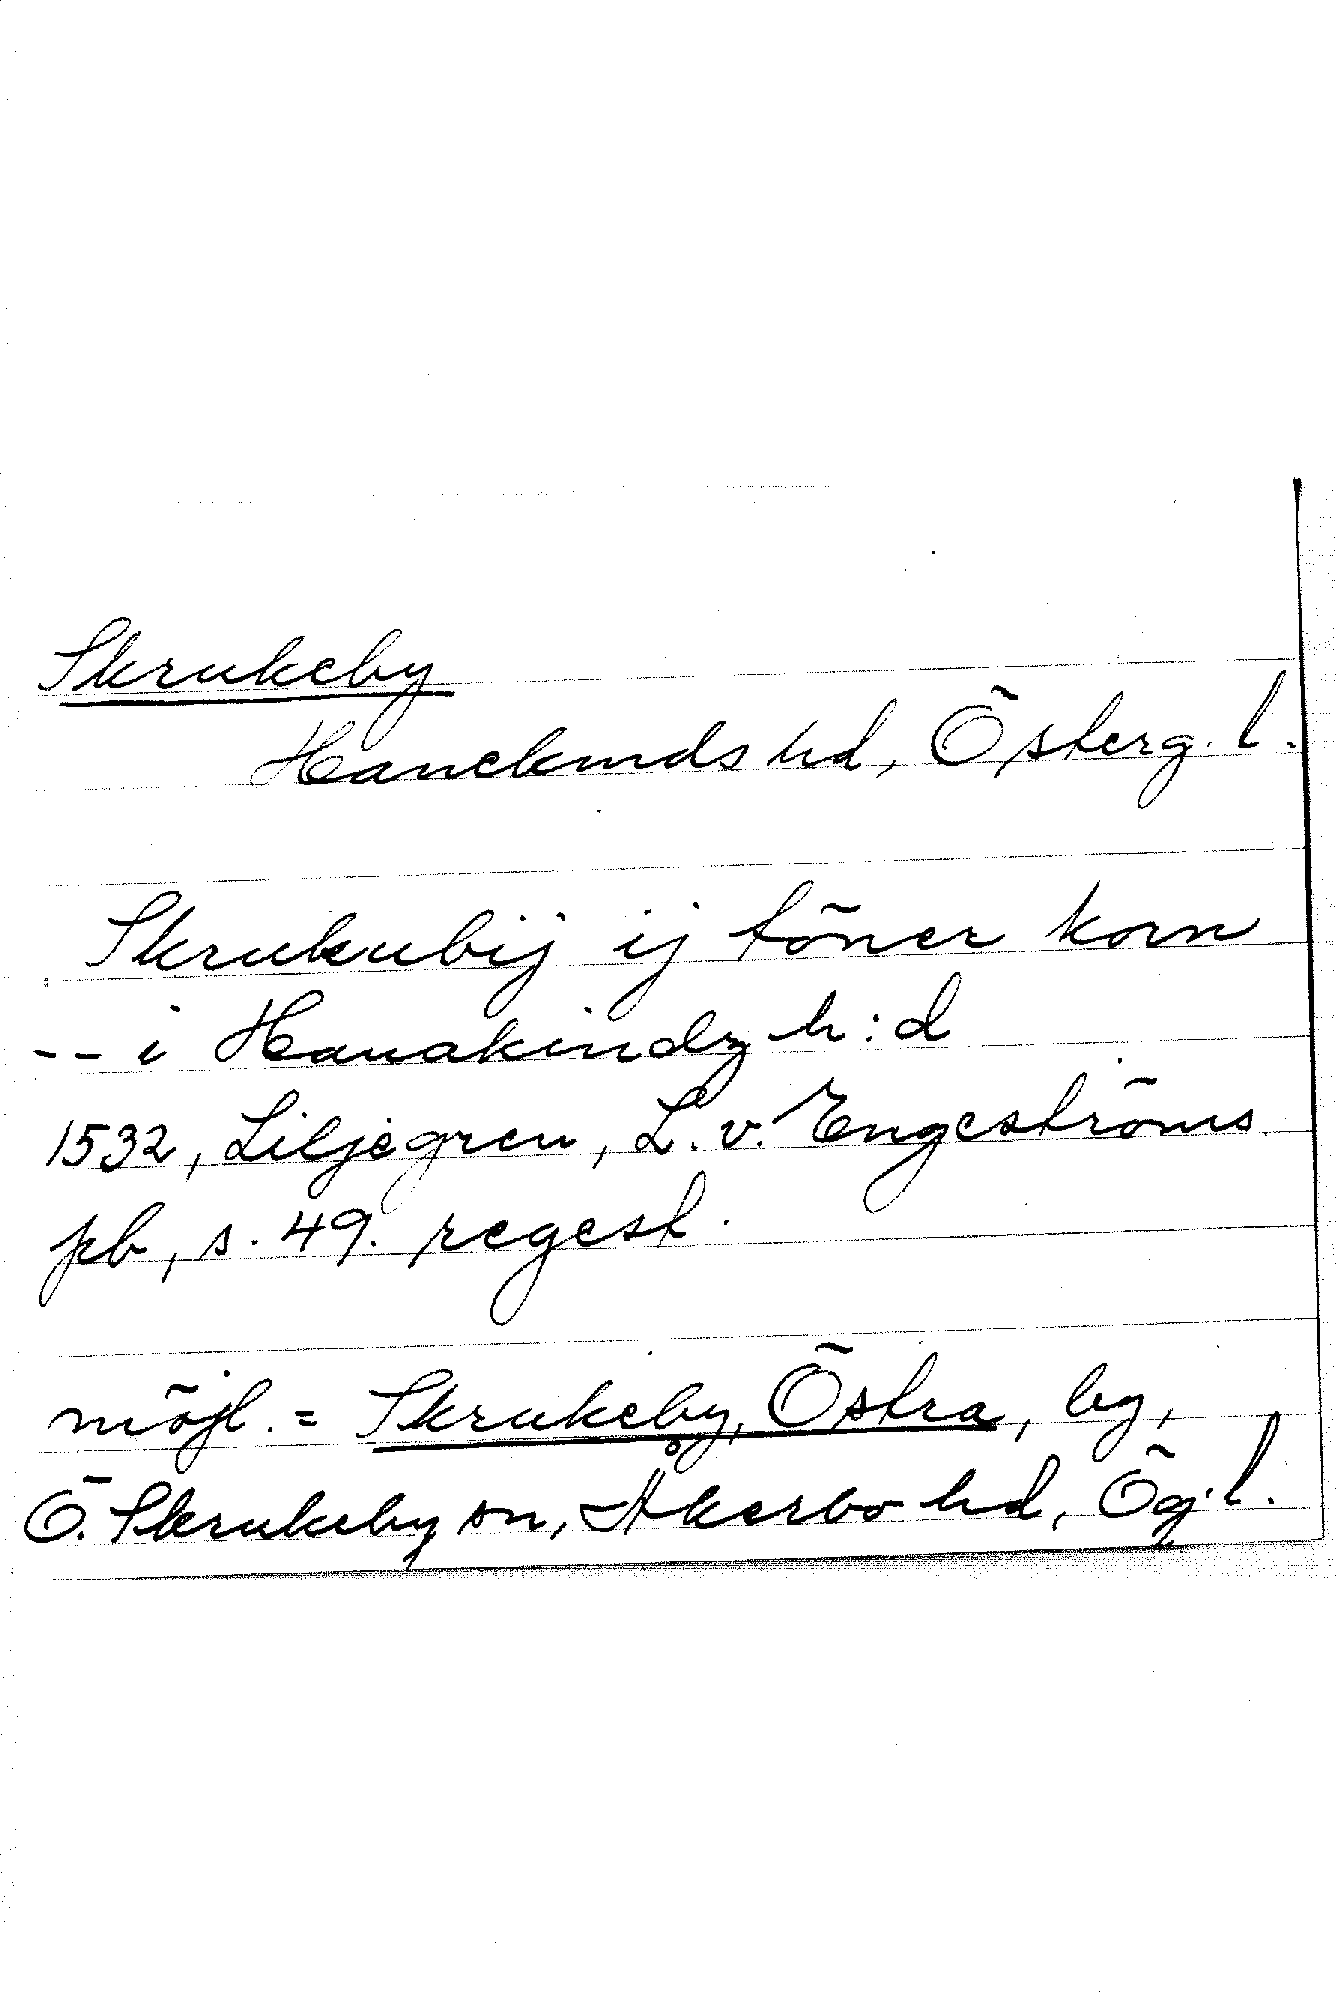 Skrukeby
Hanekinds hd, Österg. l.
Skrukubij ij töner korn
-- i Hanakindz h:d
1532, Liljegren, L. v. Engeströms
pb, s. 49. regest.
möjl. = Skrukeby, Östra, by,
Ö. Skrukeby sn, Åkerbo hd, Ög. l.